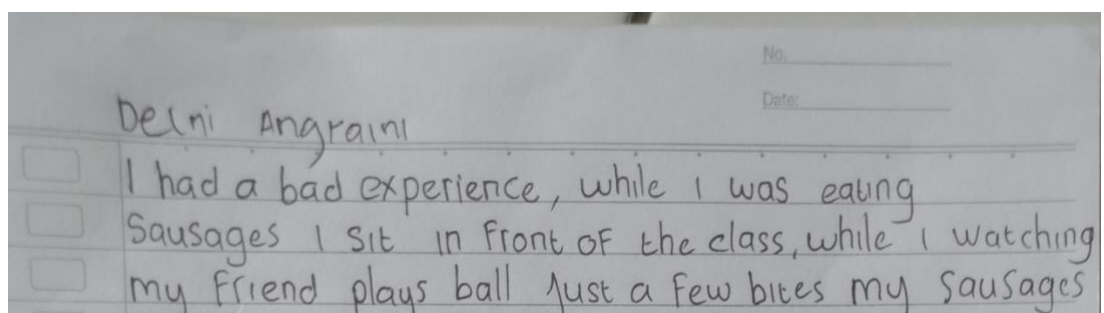 No.
Date:
Delni Angraini
I had a bad experience, while i was eating
Sausages I sit in front of the class, while i watching
my friend plays ball Just a few bites my sausages